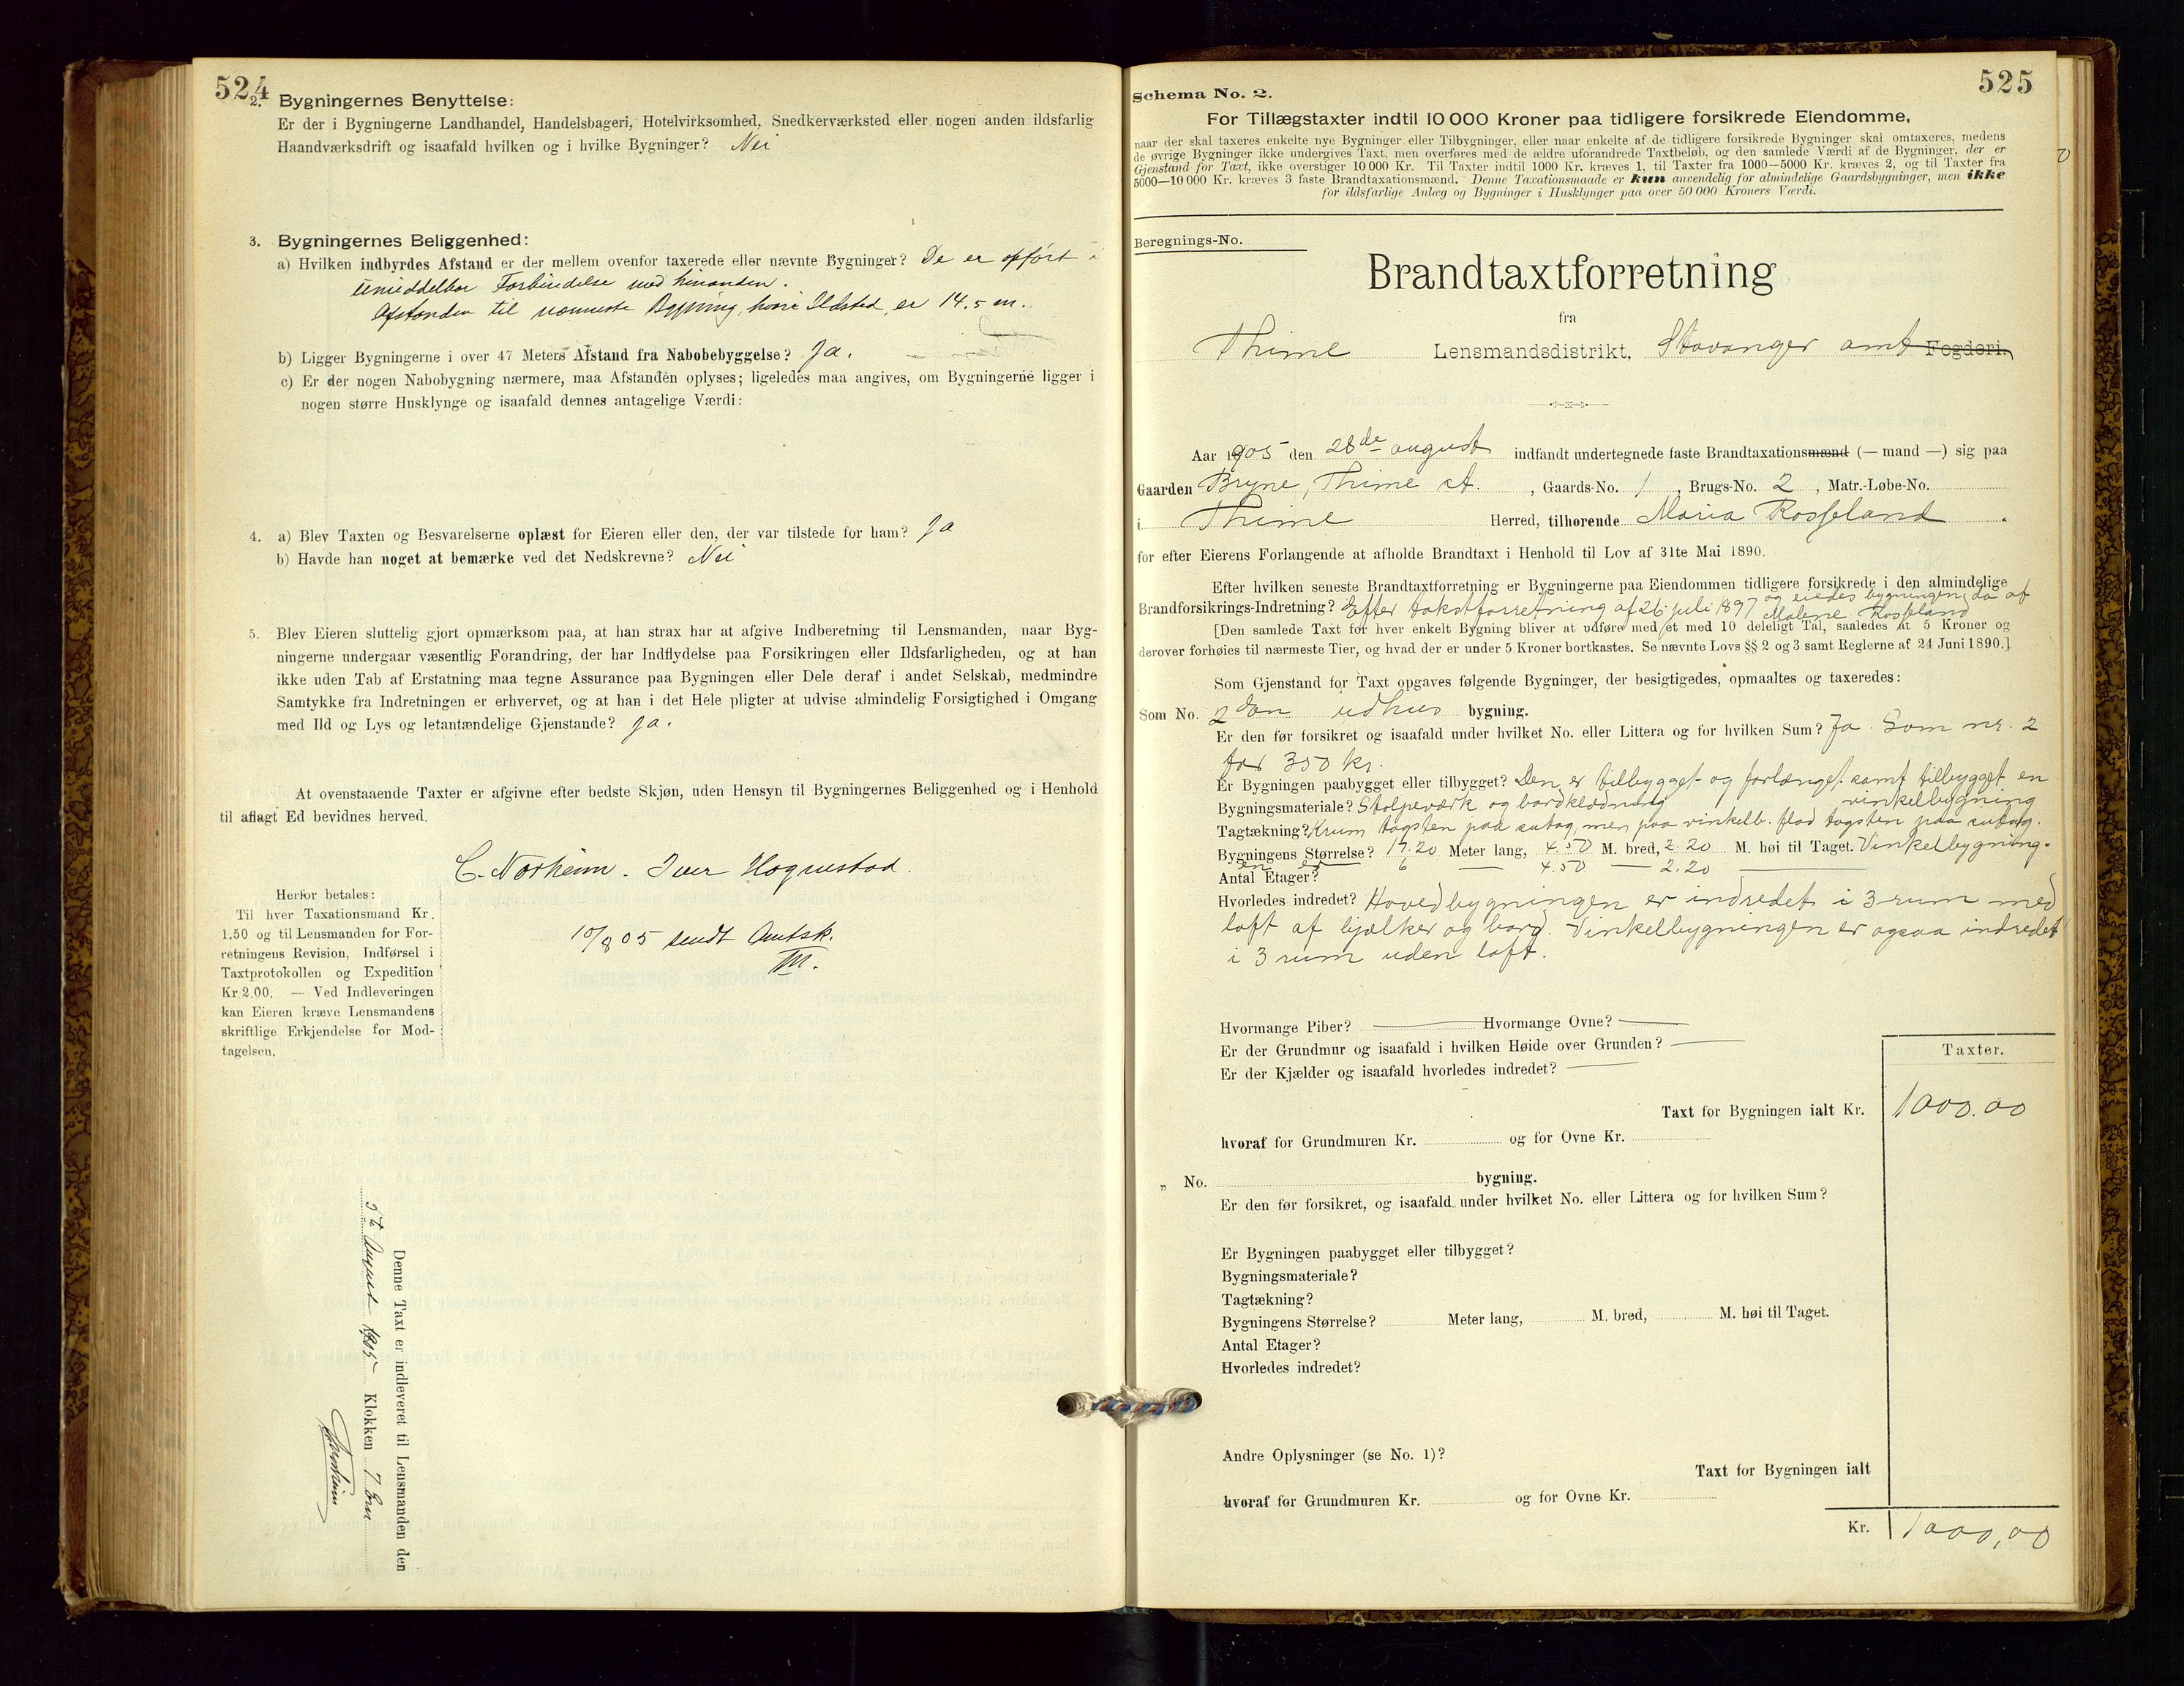 524
2. Bygningernes Benyttelse:
Er der i Bygningerne Landhandel, Handelsbageri, Hotelvirksomhed, Snedkerværksted eller nogen anden ildsfarlig
Haandværksdrift og isaafald hvilken og i hvilke Bygninger? Nei
3. Bygningernes Beliggenhed:
a) Hvilken indbyrdes Afstand er der mellem ovenfor taxerede eller nævnte Bygninger? De er opført i
umiddelbar Forbindelse med hinanden.
Afstanden til nærmeste Bygning, hvori Ildsted, er 14.5 m.
b) Ligger Bygningerne i over 47 Meters Afstand fra Nabobebyggelse? Ja.
c) Er der nogen Nabobygning nærmere, maa Afstanden oplyses; ligeledes maa angives, om Bygningerne ligger i
nogen større Husklynge og isaafald dennes antagelige Værdi:
4. a) Blev Taxten og Besvarelserne oplæst for Eieren eller den, der var tilstede for ham? Ja
b) Havde han noget at bemærke ved det Nedskrevne? Nei
5. Blev Eieren sluttelig gjort opmærksom paa, at han strax har at afgive Indberetning til Lensmanden, naar Byg-
ningerne undergaar væsentlig Forandring, der har Indflydelse paa Forsikringen eller Ildsfarligheden, og at han
ikke uden Tab af Erstatning maa tegne Assurance paa Bygningen eller Dele deraf i andet Selskab, medmindre
Samtykke fra Indretningen er erhvervet, og at han i det Hele pligter at udvise almindelig Forsigtighed i Omgang
med Ild og Lys og letantændelige Gjenstande? Ja.
At ovenstaaende Taxter er afgivne efter bedste Skjøn, uden Hensyn til Bygningernes Beliggenhed og i Henhold
til aflagt Ed bevidnes herved.
C. Norheim. Iver Hognestad.
Herfor betales:
Til hver Taxationsmand Kr.
1.50 og til Lensmanden for For-
retningens Revision, Indførsel i
Taxtprotokollen og Expedition
Kr. 2.00. — Ved Indleveringen
kan Eieren kræve Lensmandens
skriftlige Erkjendelse for Mod-
tagelsen.
10/8 05 sendt Amtsk.
Denne Taxt er indleveret til Lensmanden den
August 1905 Klokken 7 Em
525
Schema No. 2.
For Tillægstaxter indtil 10 000 Kroner paa tidligere forsikrede Eiendomme,
naar der skal taxeres enkelte nye Bygninger eller Tilbygninger, eller naar enkelte af de tidligere forsikrede Bygninger skal omtaxeres, medens
de øvrige Bygninger ikke undergives Taxt, men overføres med de ældre uforandrede Taxtbeløb, og den samlede Værdi af de Bygninger, der er
Gjenstand for Taxt, ikke overstiger 10 000 Kr. Til Taxter indtil 1000 Kr. kræves 1, til Taxter fra 1000—5000 Kr. kræves 2, og til Taxter fra
5000—10 000 Kr. kræves 3 faste Brandtaxationsmænd. Denne Taxationsmaade er kun anvendelig for almindelige Gaardsbygninger, men ikke
for ildsfarlige Anlæg og Bygninger i Husklynger paa over 50 000 Kroners Værdi.
Beregnings-No.
Brandtaxtforretning
fra
Thime Lensmandsdistrikt, Stavanger amt Fogderi.
Aar 1905 den 28de august indfandt undertegnede faste Brandtaxationsmænd (— mand —) sig paa
Gaarden Bryne, Thime st. , Gaards-No. 1 , Brugs-No. 2 , Matr.-Løbe-No.
i Thime Herred, tilhørende Maria Rosseland .
for efter Eierens Forlangende at afholde Brandtaxt i Henhold til Lov af 31te Mai 1890.
Efter hvilken seneste Brandtaxtforretning er Bygningerne paa Eiendommen tidligere forsikrede i den almindelige
Brandforsikrings-Indretning? Efter takstforretning af 26 juli 1897 og eiedes bygningen da af
Malene Rosseland
[Den samlede Taxt for hver enkelt Bygning bliver at udføre med et med 10 deleligt Tal, saaledes at 5 Kroner og
derover forhøies til nærmeste Tier, og hvad der er under 5 Kroner bortkastes. Se nævnte Lovs §§ 2 og 3 samt Reglerne af 24 Juni 1890.]
Som Gjenstand for Taxt opgaves følgende Bygninger, der besigtigedes, opmaaltes og taxeredes:
Som No. 2den udhus bygning.
Er den før forsikret og isaafald under hvilket No. eller Littera og for hvilken Sum? Ja. Som nr. 2
for 350 kr.
Er Bygningen paabygget eller tilbygget? Den er tilbygget og forlænget samt tilbygget en
vinkelbygning
Bygningsmateriale? Stolpeværk og bordklædning
Tagtækning? Krum tagsten paa sutag, men paa vinkelb. flad tagsten paa sutag.
Bygningens Størrelse? 17.20 Meter lang, 4.50 M. bred, 2.20 M. høi til Taget. Vinkelbygning.
en er 6 — 4.50 — 2.20 —
Antal Etager?
Hvorledes indredet? Hovedbygningen er indredet i 3 rum med
loft af bjælker og bord. Vinkelbygningen er ogsaa indredet
i 3 rum uden loft.
Hvormange Piber? — Hvormange Ovne? —
Er der Grundmur og isaafald i hvilken Høide over Grunden? —
Er der Kjælder og isaafald hvorledes indredet? —
Taxter.
Taxt for Bygningen ialt Kr. 1000.00
hvoraf for Grundmuren Kr. og for Ovne Kr.
„ No. bygning.
Er den før forsikret, og isaafald under hvilket No. eller Littera og for hvilken Sum?
Er Bygningen paabygget eller tilbygget?
Bygningsmateriale?
Tagtækning?
Bygningens Størrelse? Meter lang, M. bred, M. høi til Taget.
Antal Etager?
Hvorledes indredet?
Andre Oplysninger (se No. 1)?
Taxt for Bygningen ialt
hvoraf for Grundmuren Kr. og for Ovne Kr.
Kr. 1000,00